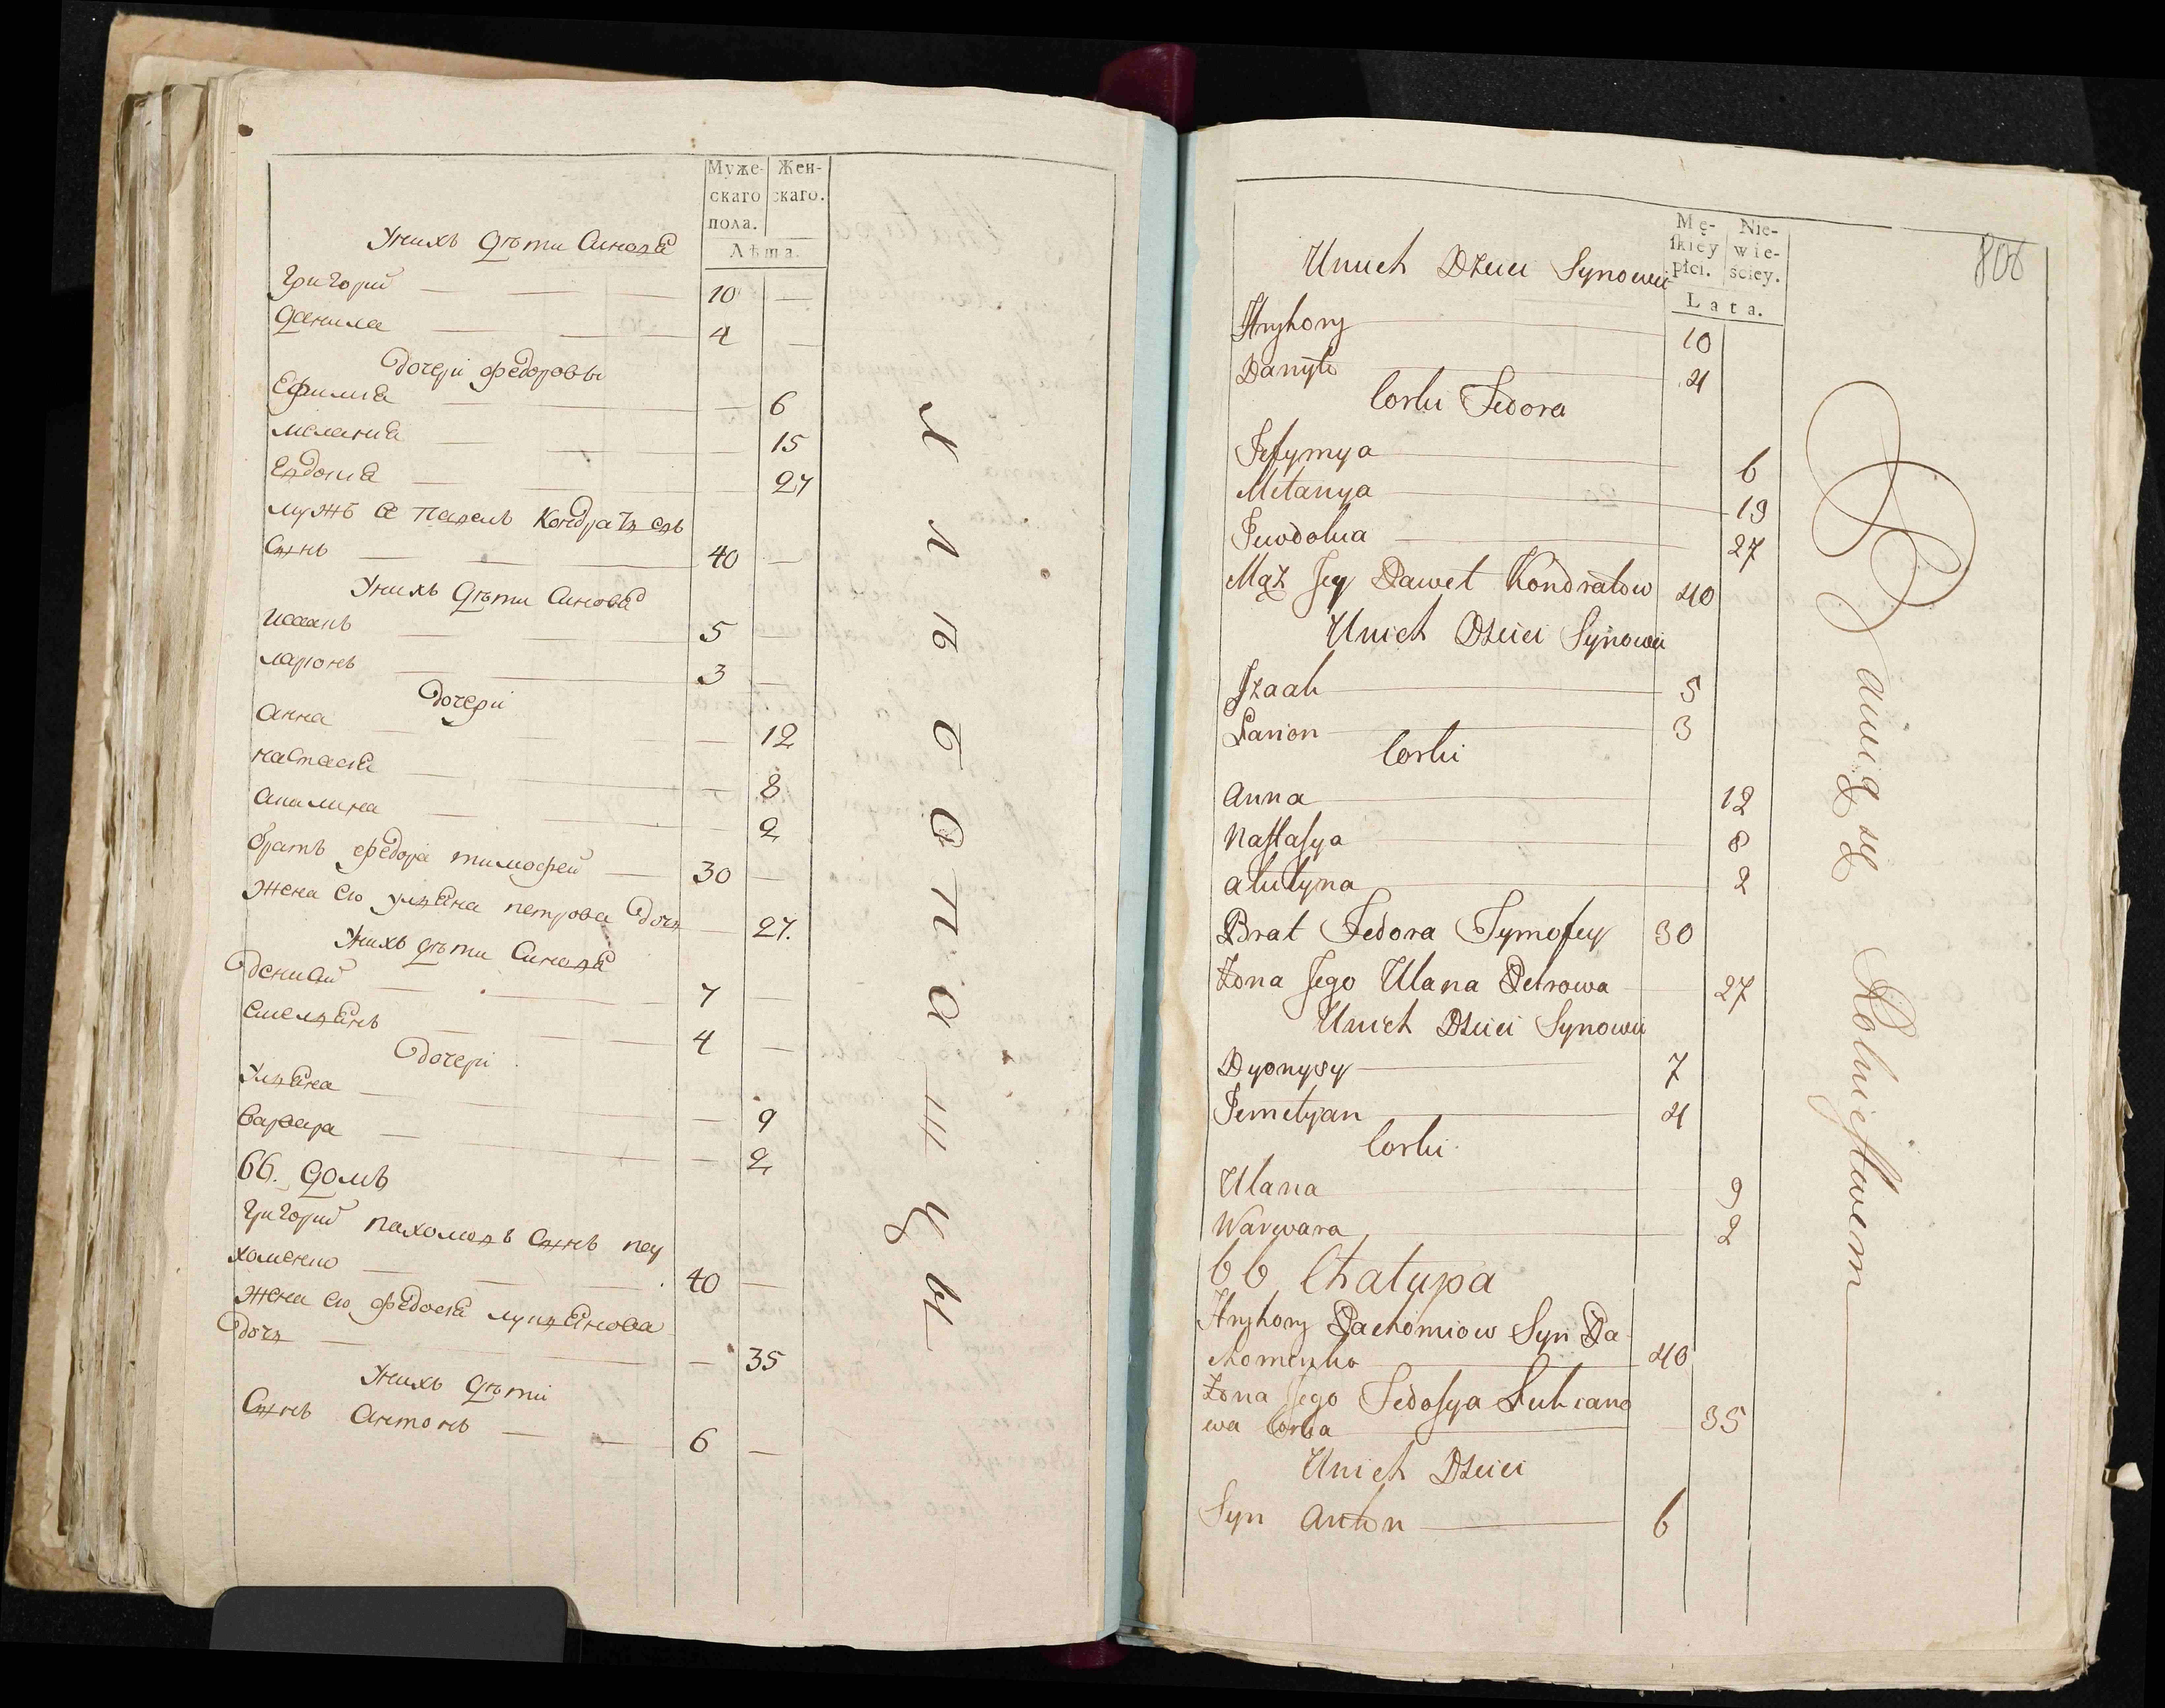 Муже-
скаго
пола.
Жен-
скаго.
Лѣта.
Унихъ дѣти Синовя
Григорий 10 —
Данила 4 —
Дочери федоровы
Ефимия — 6
мелания — 15
Евдокия — 27
мужъ ея павелъ Кондратьевъ
Сынъ 40 —
Унихъ Дѣти Синовя
Исаакъ 5 —
ларионъ 3 —
Дочери
Анна — 12
настасия — 8
Акилина — 2
братъ федора тимофей 30 —
жена ею ульяна петрова Дочь — 27.
Унихъ дѣти Синовя
Денисий 7 —
Емельянъ 4 —
Дочери
Ульяна — 9
Варвара — 2
66. Домъ
Григорий пахомовъ Сынъ пау
хоменко 40 —
жена ею федосия лукьянова
Дочь — 35
Унихъ Дѣти
Сынъ Антонъ 6 —
Хлѣбопашцы
Mę-
ſkiey
płci.
Nie-
wie-
ściey.
Lata.
808
Unich Dzieci Synowie
Hryhory 10
Danyło 4
Corki Fedora
Jefymya 6
Mełanya 19
Jewdokia 27
Mąż Jey Paweł Kondratow 40
Unich Dzieci Synowie
Jzaak 5
Larion 3
Corki
Anna 12
Naſtaſya 8
Akulyna 2
Brat Fedora Tymofey 30
Żona Jego Ulana Petrowa 27
Unich Dzieci Synowie
Dyonyzy 7
Jemelyan 4
Corki
Ulana 9
Warwara 2
66 Chałupa
Hryhory Pachomiow Syn Pa
chomenko 40
Żona Jego Fedoſya Lukiano
wa Corka 35
Unich Dzieci
Syn Anton 6
Bawią się Rolnictwem